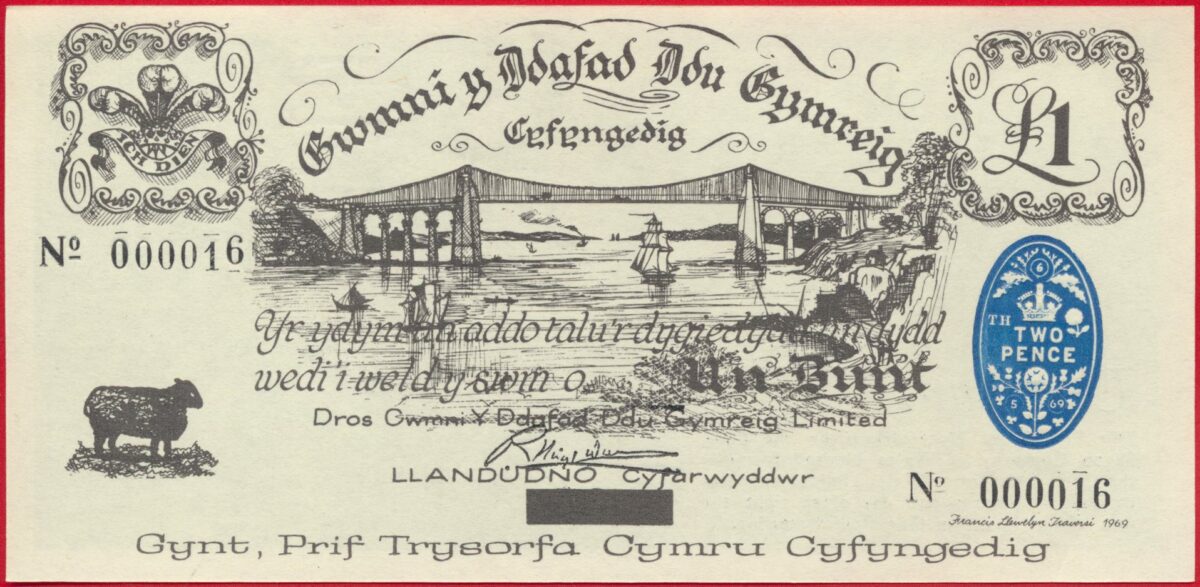 Gwmni y Ddafad Ddu Gymreig
Cyfyngedig
ICH DIEN
£1
Nº 000016
Yr ydym yn addo talu'r dygiedydd dydd
wedi i weld y swm o Un Bunt
Dros Gwmni Y Ddafad Ddu Gymreig Limited
LLANDUDNO Cyfarwyddwr
6
TH
TWO
PENCE
5 69
Nº 000016
Francis Llewelyn Traversi 1969
Gynt, Prif Trysorfa Cymru Cyfyngedig